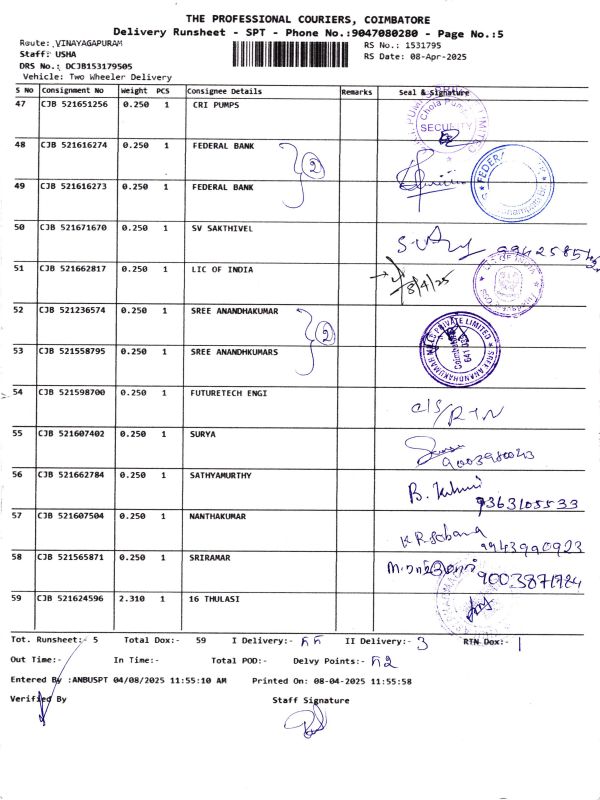 THE PROFESSIONAL COURIERS, COIMBATORE
Delivery Runsheet - SPT - Phone No.:9047080280 - Page No.:5
Route: VINAYAGAPURAM
Staff: USHA
DRS No.: DCJB153179505
Vehicle: Two Wheeler Delivery
RS No.: 1531795
RS Date: 08-Apr-2025
S No Consignment No Weight PCS Consignee Details Remarks Seal & Signature
47 CJB 521651256 0.250 1 CRI PUMPS
Chola Pump SECURITY LIMITED
48 CJB 521616274 0.250 1 FEDERAL BANK
2
49 CJB 521616273 0.250 1 FEDERAL BANK
FEDERAL
50 CJB 521671670 0.250 1 SV SAKTHIVEL
51 CJB 521662817 0.250 1 LIC OF INDIA
8/4/25 LIC OF INDIA
52 CJB 521236574 0.250 1 SREE ANANDHAKUMAR
2
SREE ANANDHAKUMAR MILLS PRIVATE LIMITED Coimbatore 641
53 CJB 521558795 0.250 1 SREE ANANDHKUMARS
54 CJB 521598700 0.250 1 FUTURETECH ENGI
c/s/RTN
55 CJB 521607402 0.250 1 SURYA
9003980043
56 CJB 521662784 0.250 1 SATHYAMURTHY
9363105533
57 CJB 521607504 0.250 1 NANTHAKUMAR
9943990923
58 CJB 521565871 0.250 1 SRIRAMAR
59 CJB 521624596 2.310 1 16 THULASI
Tot. Runsheet:- 5 Total Dox:- 59 I Delivery:- 55 II Delivery:- 3 RTN Dox:- 1
Out Time:- In Time:- Total POD:- Delvy Points:- 52
Entered By :ANBUSPT 04/08/2025 11:55:10 AM Printed On: 08-04-2025 11:55:58
Verified By Staff Signature